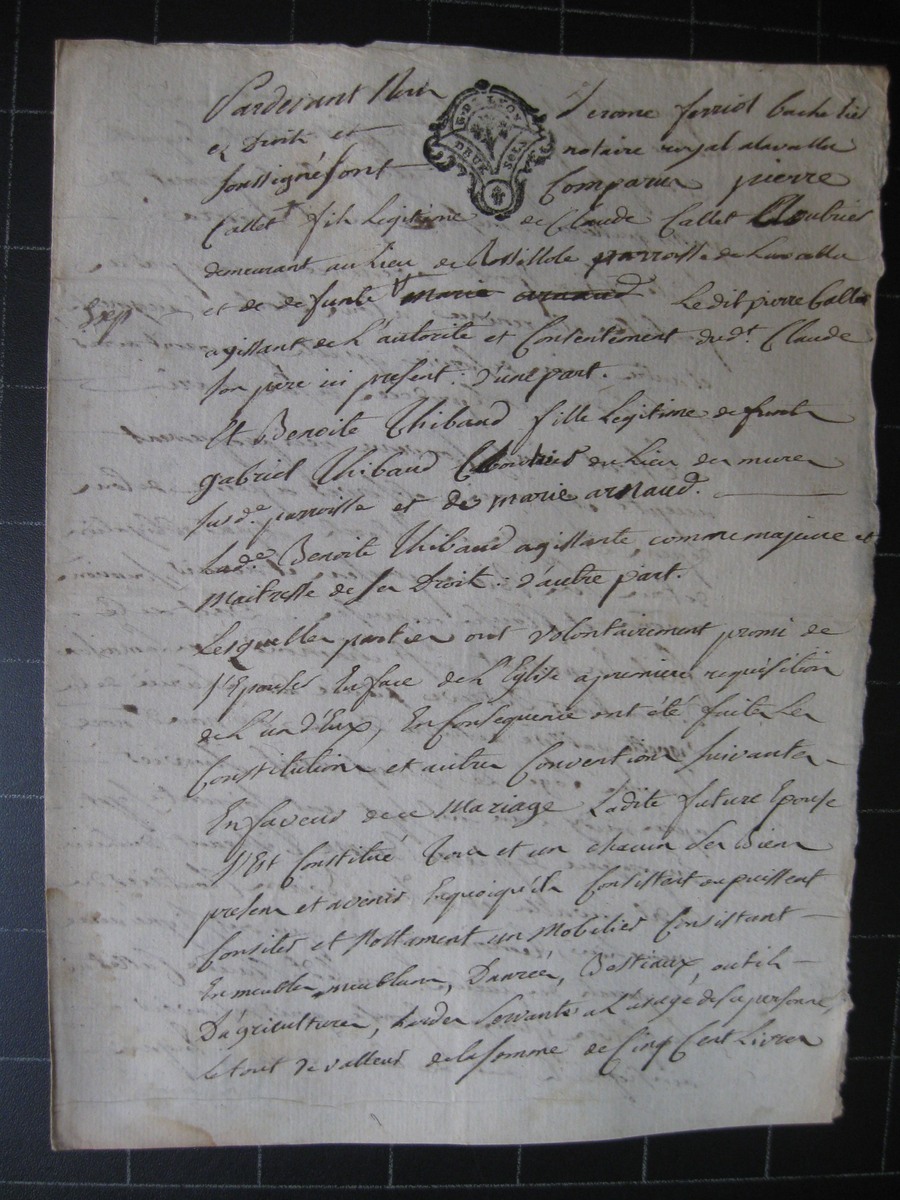 Pardevant Nous Jerome ferriol bachelier
es Droits et notaire royal a lavalla
soussigné sont Comparus pierre
G. DE LYON
DEUX SOLS
Callet fils Legitime de Claude Callet
demeurant au lieu de parroisse de Lavalla
et de defunte marie arnaud Ledit pierre Callet
agissant de L'autorité et Consentement dud.t Claude
son père ici present : d'une part.
Et Benoite Thibaud fille Legitime de funt
gabriel Thibaud du Lieu des mures
susd.e parroisse et de marie arnaud.
Lad.e Benoite Thibaud agissante comme majeure et
Maitresse de ses Droits : d'autre part.
Lesquelles parties ont volontairement promi de
s'Epouser En face de L'Eglise a premiere requisition
de L'un d'Eux, En Consequence ont été faites Les
Constitutions et autres Conventions suivantes
En faveur de ce Mariage Ladite future Epouse
s'Est Constitué tous et un chacun ses Biens
presens et avenir En quoiqu'ils Consistent ou puissent
Consister et Nottament un Mobilier Consistant
En meubles meublans, Danrées, Bestiaux, outils
D'agricultures, hardes servants a L'usage de sa personne,
le tout de valleur de la somme de Cinq Cent Livres